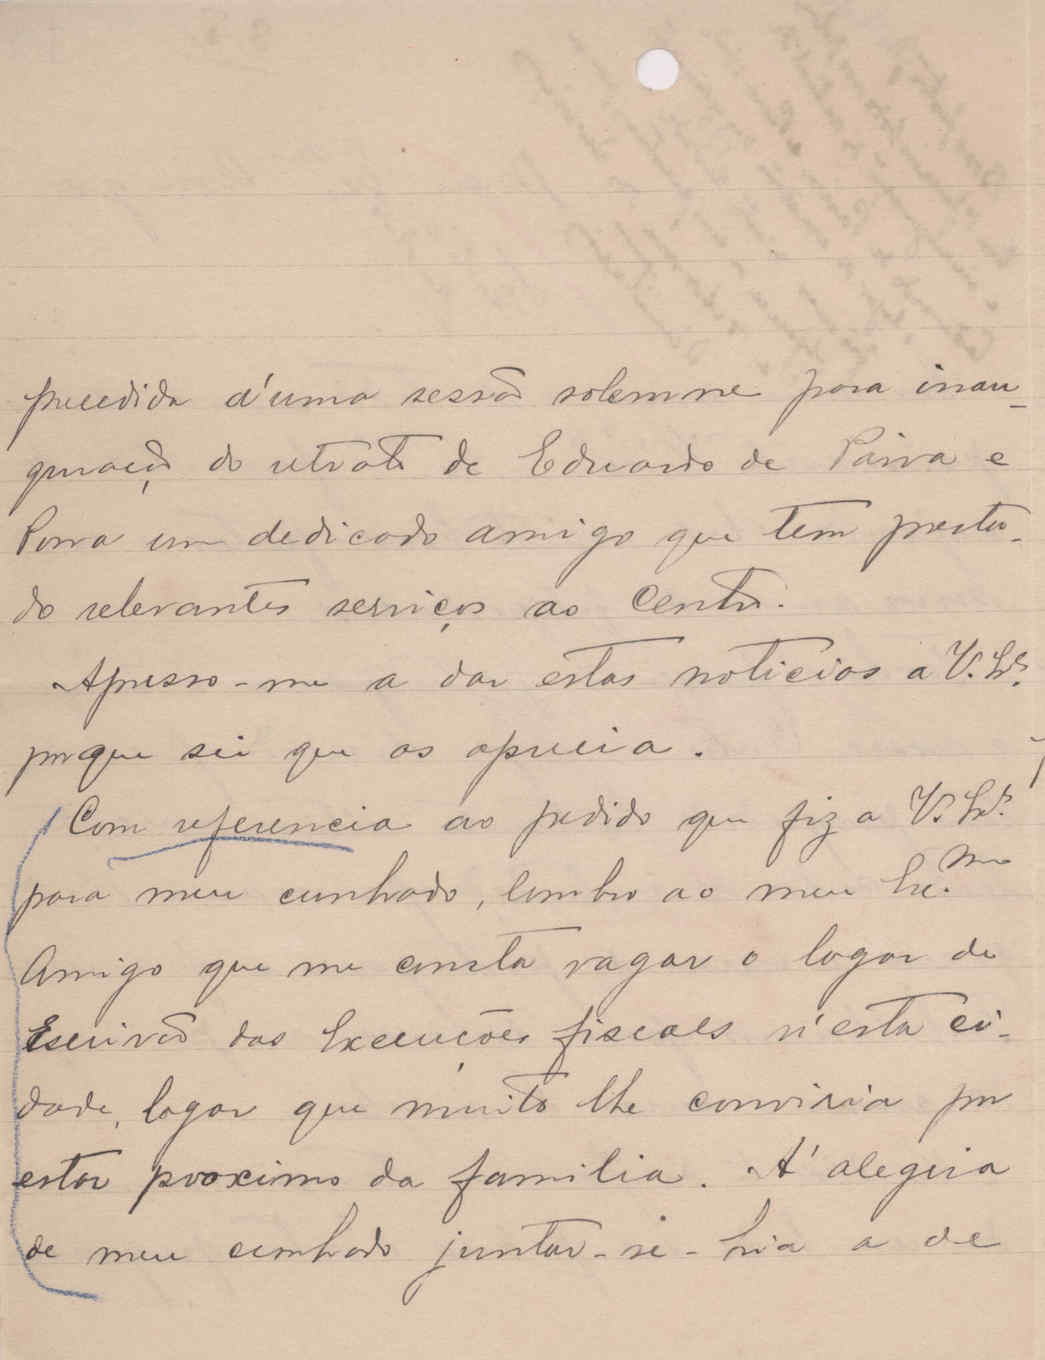 precedida d'uma sessão solemne para inau-
guração do retrato de Eduardo de Paiva e
Pona um dedicado amigo que tem presta-
do relevantes serviços ao Centro.
Apresso-me a dar estas noticias a V. Exª.
porque sei que as aprecia.
Com referencia ao pedido que fiz a V. Exª.
para meu cunhado, lembro ao meu Ex.mo
Amigo que me consta vagar o logar de
Escrivão das Execuções fiscaes n'esta ci-
dade, logar que muito lhe conviria por
estar proximo da familia. A' alegria
de meu cunhado juntar-se-hia a de